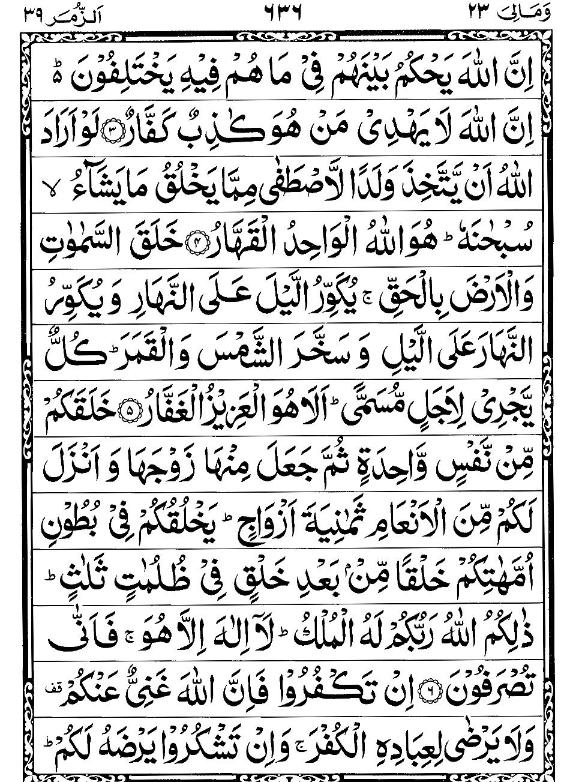 وَمَالِیَ ٢٣ ٦٣٦ اَلزُّمَر ٣٩
اِنَّ اللّٰهَ یَحْكُمُ بَیْنَهُمْ فِیْ مَا هُمْ فِیْهِ یَخْتَلِفُوْنَ ؕ۬
اِنَّ اللّٰهَ لَا یَهْدِیْ مَنْ هُوَ كٰذِبٌ كَفَّارٌ ﴿٣﴾ لَوْ اَرَادَ
اللّٰهُ اَنْ یَّتَّخِذَ وَلَدًا لَّاصْطَفٰی مِمَّا یَخْلُقُ مَا یَشَآءُ ۙ
سُبْحٰنَهٗ ؕ هُوَ اللّٰهُ الْوَاحِدُ الْقَهَّارُ ﴿٤﴾ خَلَقَ السَّمٰوٰتِ
وَالْاَرْضَ بِالْحَقِّ ۚ یُكَوِّرُ الَّیْلَ عَلَی النَّهَارِ وَیُكَوِّرُ
النَّهَارَ عَلَی الَّیْلِ وَسَخَّرَ الشَّمْسَ وَالْقَمَرَ ؕ كُلٌّ
یَّجْرِیْ لِاَجَلٍ مُّسَمًّی ؕ اَلَا هُوَ الْعَزِیْزُ الْغَفَّارُ ﴿٥﴾ خَلَقَكُمْ
مِّنْ نَّفْسٍ وَّاحِدَةٍ ثُمَّ جَعَلَ مِنْهَا زَوْجَهَا وَاَنْزَلَ
لَكُمْ مِّنَ الْاَنْعَامِ ثَمٰنِیَةَ اَزْوَاجٍ ؕ یَخْلُقُكُمْ فِیْ بُطُوْنِ
اُمَّهٰتِكُمْ خَلْقًا مِّنْۢ بَعْدِ خَلْقٍ فِیْ ظُلُمٰتٍ ثَلٰثٍ ؕ
ذٰلِكُمُ اللّٰهُ رَبُّكُمْ لَهُ الْمُلْكُ ؕ لَاۤ اِلٰهَ اِلَّا هُوَ ۚ فَاَنّٰی
تُصْرَفُوْنَ ﴿٦﴾ اِنْ تَكْفُرُوْا فَاِنَّ اللّٰهَ غَنِیٌّ عَنْكُمْ قف
وَلَا یَرْضٰی لِعِبَادِهِ الْكُفْرَ ۚ وَاِنْ تَشْكُرُوْا یَرْضَهُ لَكُمْ ؕ